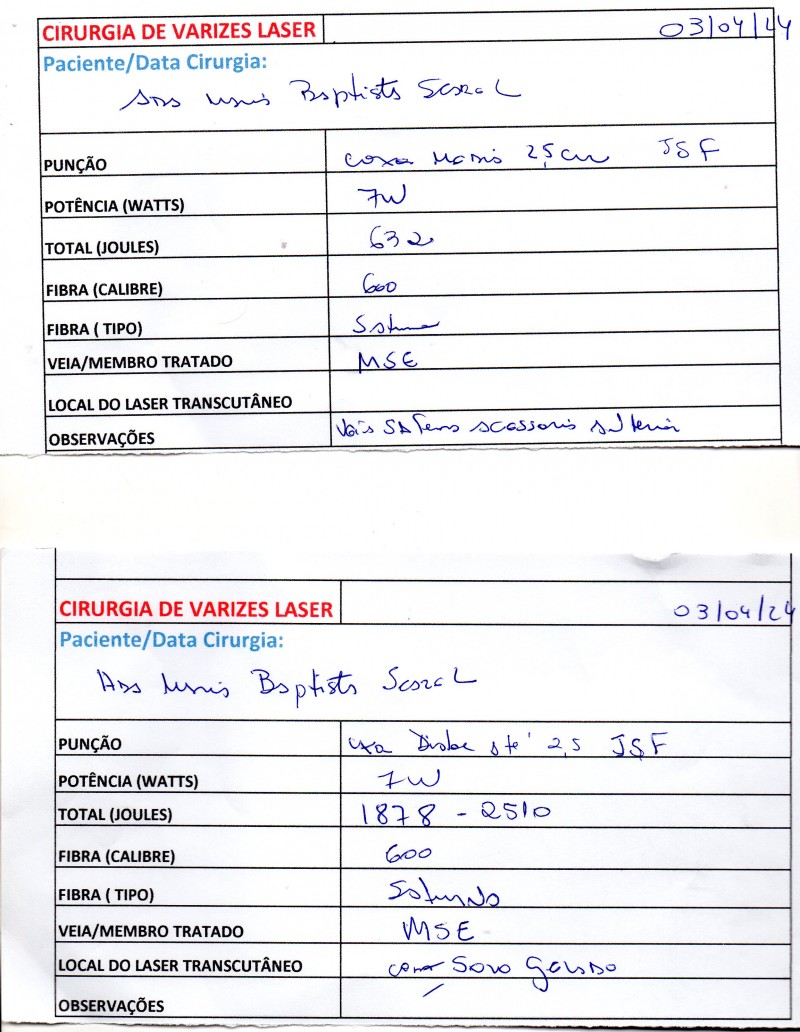 CIRURGIA DE VARIZES LASER 03/04/24
Paciente/Data Cirurgia:
Ana Maria Baptista
PUNÇÃO coxa 2,5cm JSF
POTÊNCIA (WATTS) 7W
TOTAL (JOULES) 632
FIBRA (CALIBRE) 600
FIBRA ( TIPO)
VEIA/MEMBRO TRATADO MSE
LOCAL DO LASER TRANSCUTÂNEO
OBSERVAÇÕES Veia Safena acessoria anterior
CIRURGIA DE VARIZES LASER 03/04/24
Paciente/Data Cirurgia:
Ana Maria Baptista
PUNÇÃO até 2,5 JSF
POTÊNCIA (WATTS) 7W
TOTAL (JOULES) 1878 - 2510
FIBRA (CALIBRE) 600
FIBRA ( TIPO)
VEIA/MEMBRO TRATADO MSE
LOCAL DO LASER TRANSCUTÂNEO com Soro Gelado
OBSERVAÇÕES